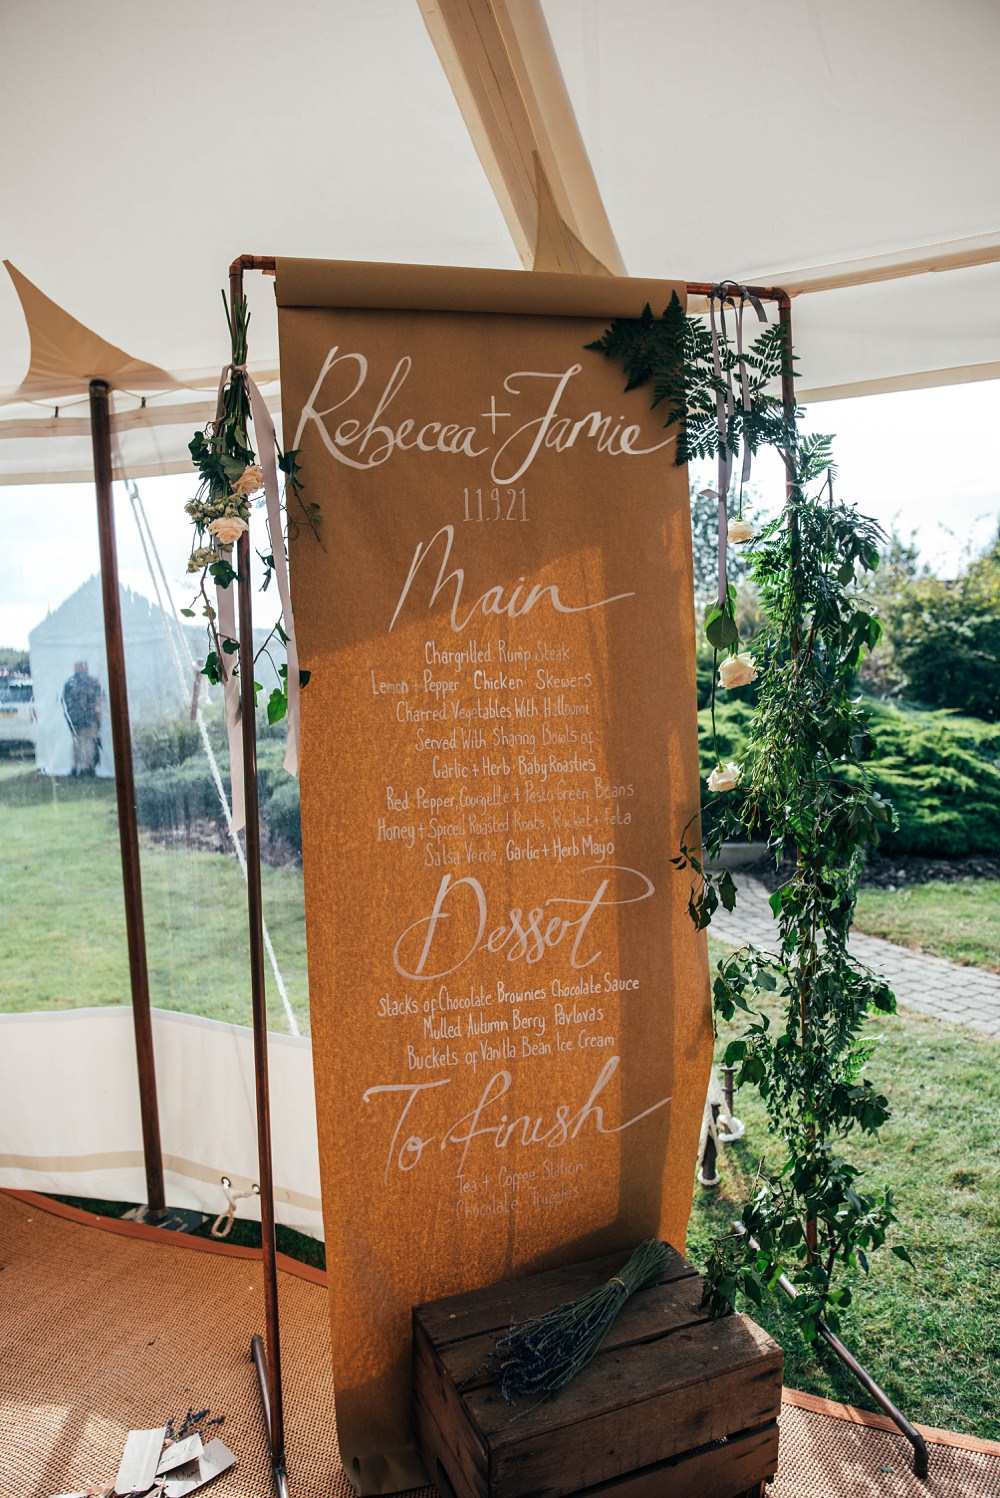 Rebecca + Jamie
11.9.21
Main
Chargrilled Rump Steak
Lemon + Pepper Chicken Skewers
Charred Vegetables With Halloumi
Served With Sharing Bowls of
Garlic + Herb Baby Roasties
Red Pepper, Courgette + Pesto Green Beans
Honey + Spiced Roasted Roots, Rocket + Feta
Salsa Verde, Garlic + Herb Mayo
Dessert
Stacks of Chocolate Brownies Chocolate Sauce
Mulled Autumn Berry Pavlovas
Buckets of Vanilla Bean Ice Cream
To finish
Tea + Coffee Station
Chocolate Truffles